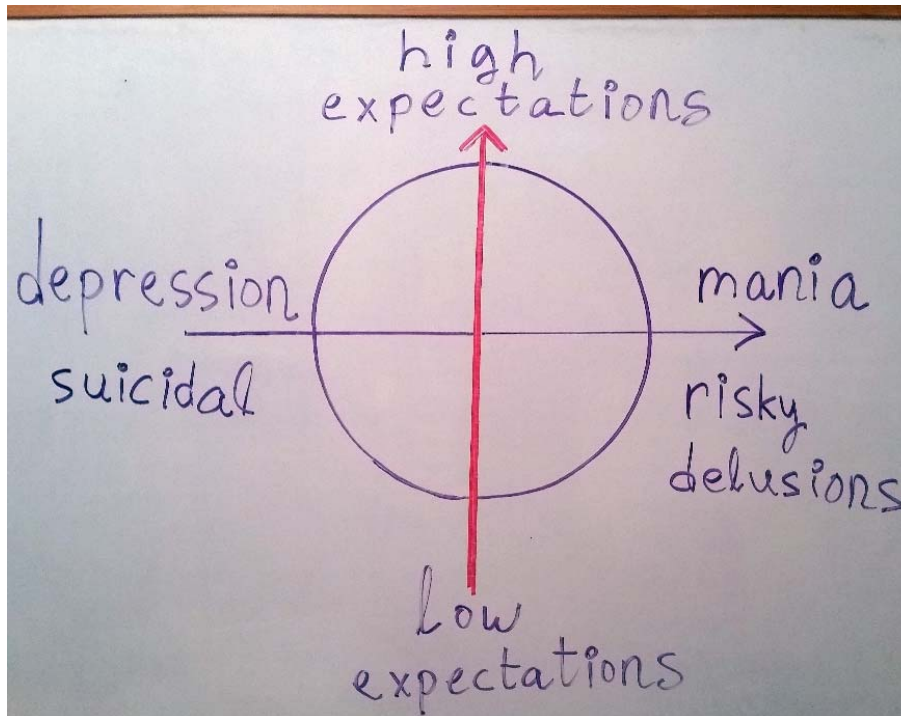 high
expectations
depression
suicidal
mania
risky
delusions
low
expectations